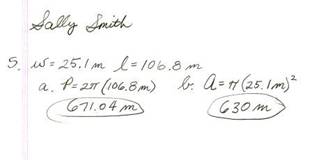 Sally Smith
5. w = 25.1 m l = 106.8 m
a. P = 2π (106.8 m) b. A = π (25.1 m)²
671.04 m 630 m